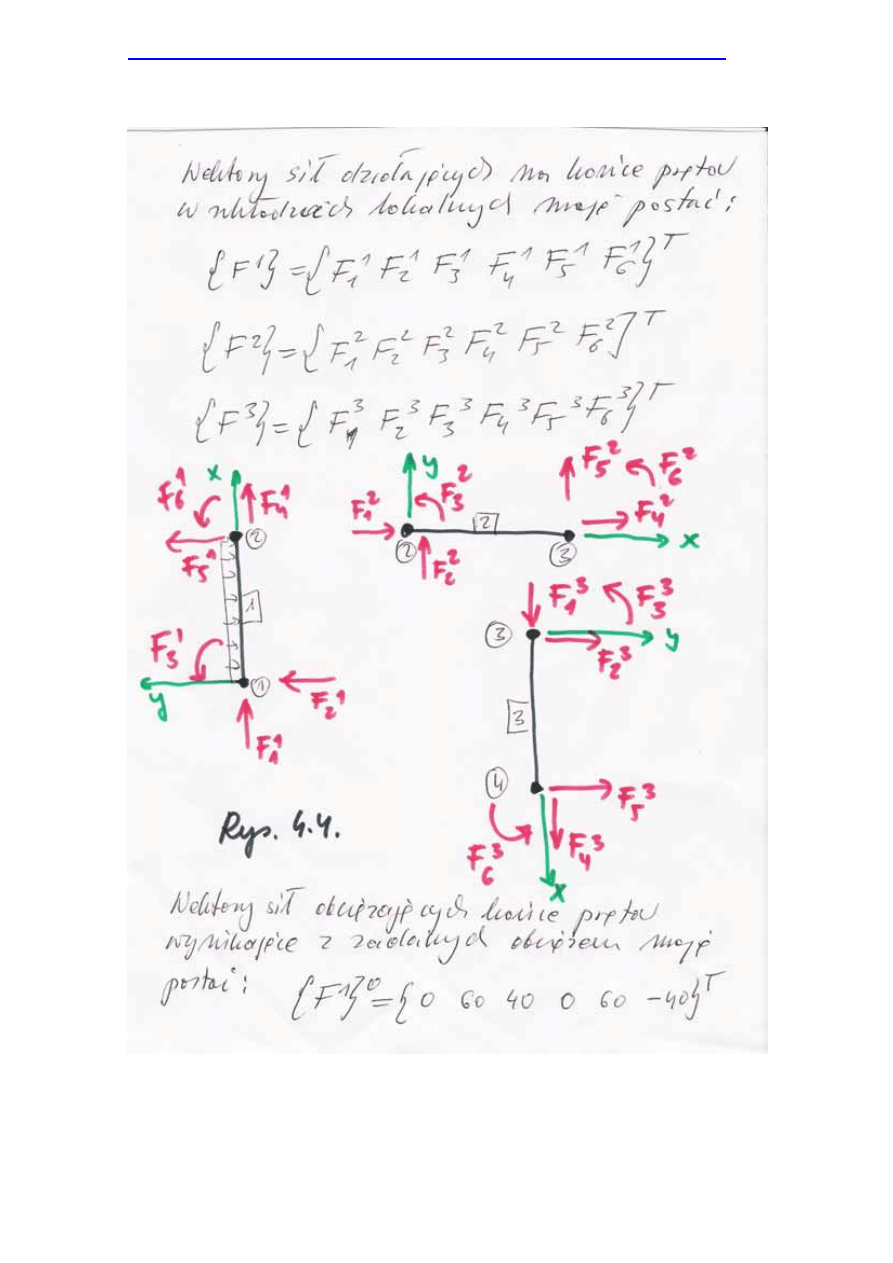 Wektory sił działających na końce prętów
w układach lokalnych mają postać:
{F¹}={F₁¹ F₂¹ F₃¹ F₄¹ F₅¹ F₆¹}ᵀ
{F²}={F₁² F₂² F₃² F₄² F₅² F₆²]ᵀ
{F³}={F₁³ F₂³ F₃³ F₄³ F₅³ F₆³}ᵀ
x F₆¹ F₄¹
F₅¹ 2
1
F₃¹
y 1 F₂¹
F₁¹
y F₃² F₅² F₆²
F₁² 2 F₄²
2 F₂² 3 x
F₁³ F₃³
3 F₂³ y
3
4 F₅³
F₆³ F₄³
x
Rys. 4.4.
Wektory sił obciążających końce prętów
wynikające z zadanych obciążeń mają
postać: {F¹}⁰={0 60 40 0 60 -40}ᵀ